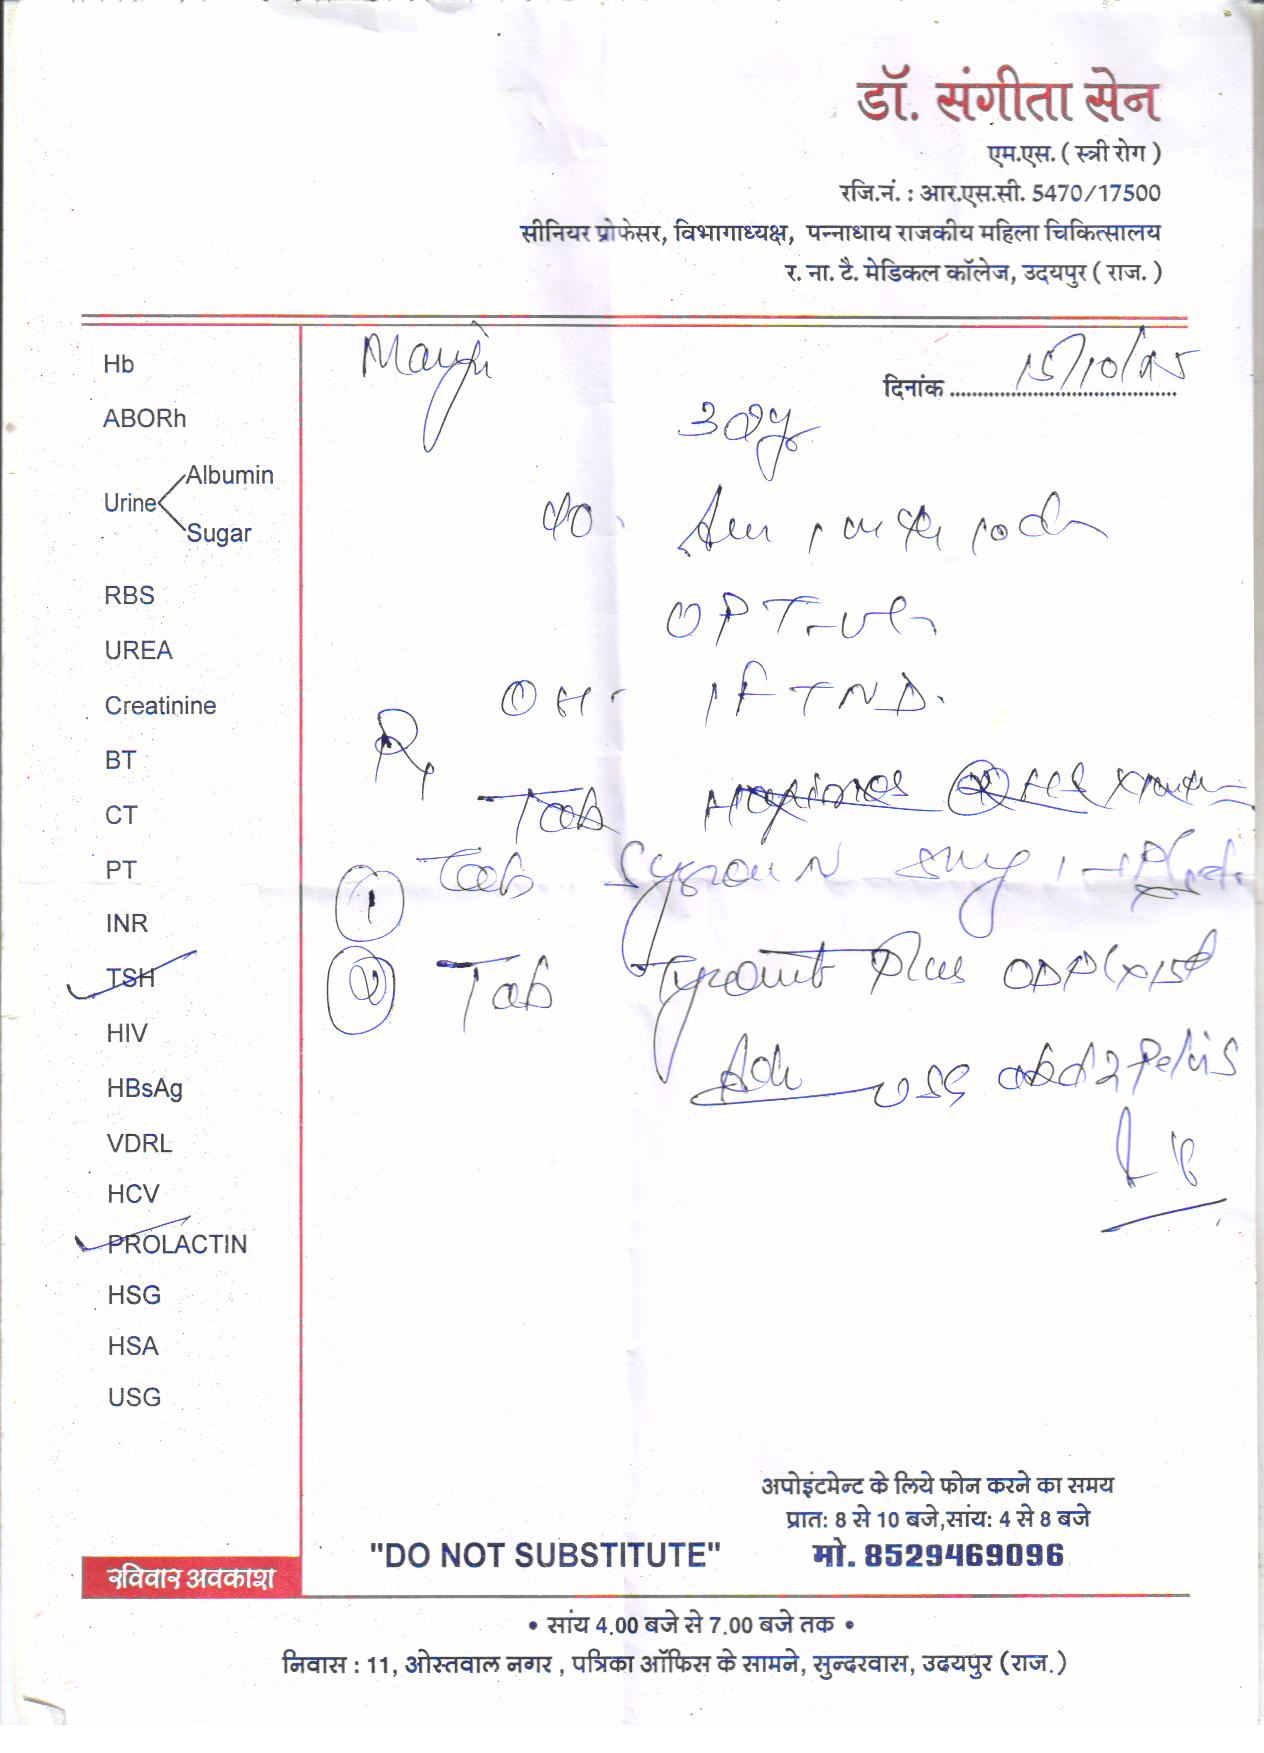 डॉ. संगीता सेन
एम.एस. ( स्त्री रोग )
रजि.नं. : आर.एस.सी. 5470/17500
सीनियर प्रोफेसर, विभागाध्यक्ष, पन्नाधाय राजकीय महिला चिकित्सालय
र. ना. टै. मेडिकल कॉलेज, उदयपुर ( राज. )
दिनांक 15/10/25
Hb
ABORh
Urine
Albumin
Sugar
RBS
UREA
Creatinine
BT
CT
PT
INR
TSH
HIV
HBsAg
VDRL
HCV
PROLACTIN
HSG
HSA
USG
UPT-ve
OH- 1FTND.
Rx
Tab
1 Tab N 5mg
2 Tab Plus
Adv USG abd & Pelvis
अपोइंटमेन्ट के लिये फोन करने का समय
प्रात: 8 से 10 बजे,सांय: 4 से 8 बजे
"DO NOT SUBSTITUTE" मो. 8529469096
रविवार अवकाश
• सांय 4.00 बजे से 7.00 बजे तक •
निवास : 11, ओस्तवाल नगर , पत्रिका ऑफिस के सामने, सुन्दरवास, उदयपुर (राज.)